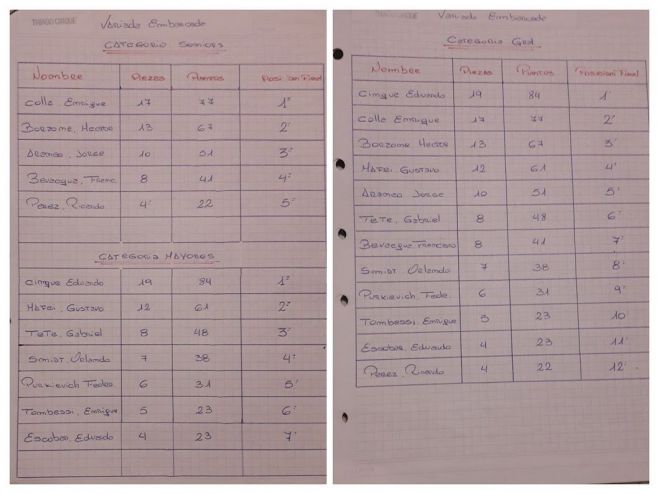 Variada Embarcada
CATEGORIA Seniors
Nombre Piezas Puntos Posicion Final
Colla Enrique 17 77 1º
Borzome, Hector 13 67 2º
Aranea, Jorge 10 51 3º
8 41 4º
Perez, Ricardo 4 22 5º
CATEGORIA MAYORES
Cinque Eduardo 19 84 1º
Gustavo 12 61 2º
TeTe, Gabriel 8 48 3º
Smidt, Orlando 7 38 4º
Purkievich Fede. 6 31 5º
Tambessi, Enrique 5 23 6º
Escobar, Eduardo 4 23 7º
Variada Embarcada
Categoria Gral
Nombre Piezas Puntos Posicion Final
Cinque Eduardo 19 84 1º
Colla Enrique 17 77 2º
Borzome Hector 13 67 3º
Gustavo 12 61 4º
Aranea Jorge 10 51 5º
TeTe, Gabriel 8 48 6º
Francisco 8 41 7º
Smidt Orlando 7 38 8º
Purkievich, Fede. 6 31 9º
Tambessi, Enrique 23 10
Escobar, Eduardo 4 23 11º
Perez, Ricardo 4 22 12º